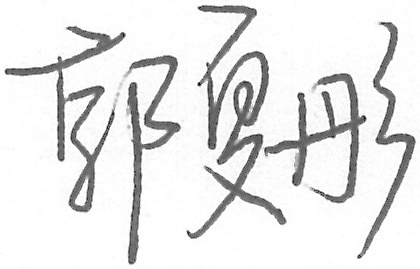 郭夏彤